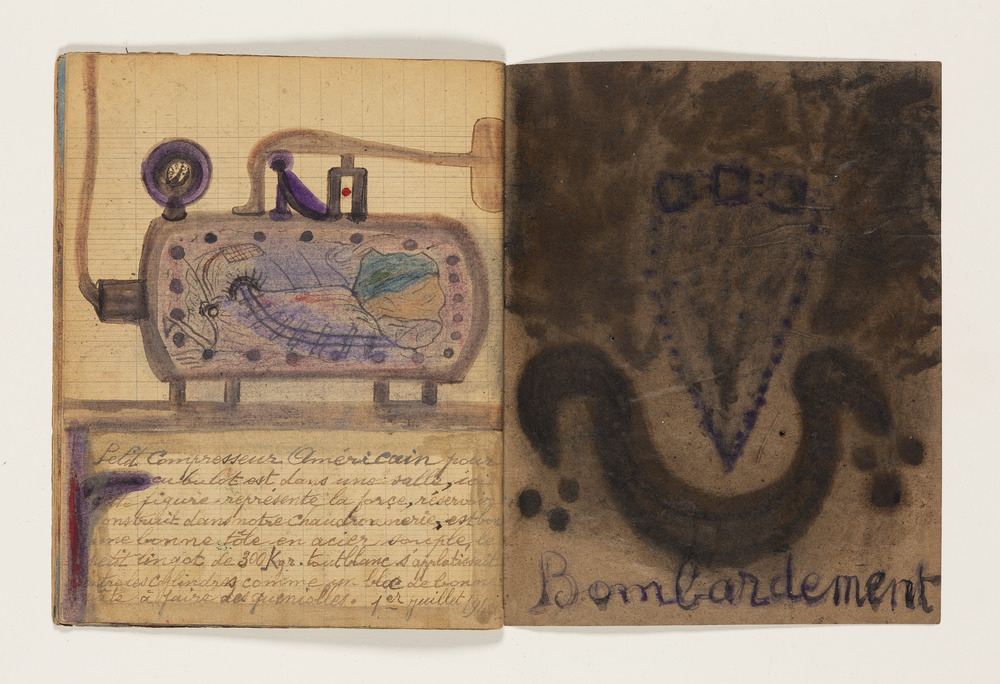 Petit Compresseur Américain pour
cubulot est dans une salle,
figure représente la force, réservoir
construit dans notre chaudronnerie, est
une bonne tôle en acier souple, le
petit lingot de 300 Kgr. tout blanc s'applatissait
entre les cylindres comme un bloc de bonne
pâte à faire des quenolles. 1er juillet
Bombardement